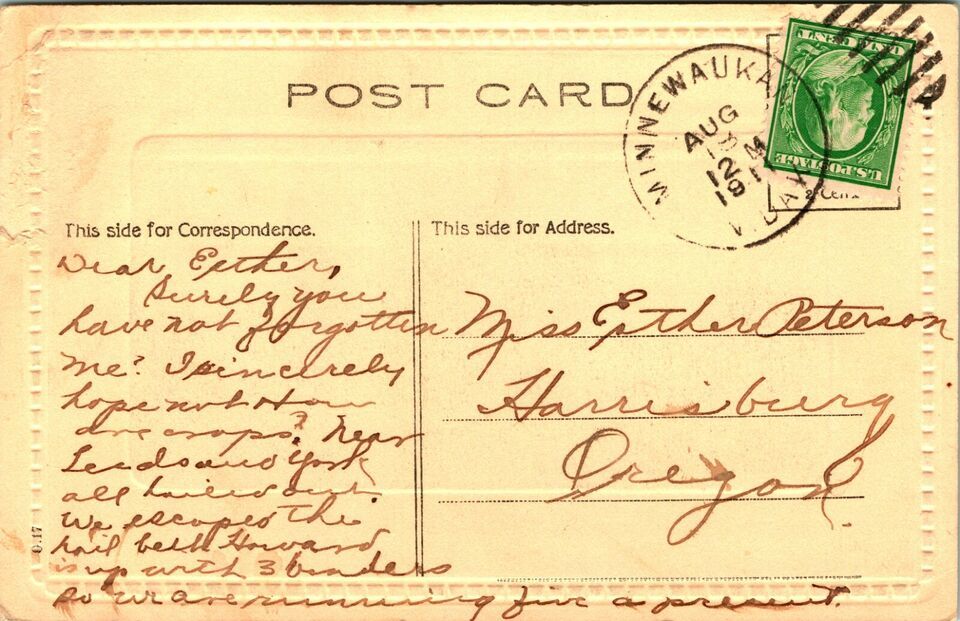 POST CARD
MINNEWAUKA
AUG
12 M
191
N. DAK
ONE CENT
U.S. POSTAGE
2 Cents
This side for Correspondence.
This side for Address.
Dear Esther,
Surely you
have not forgotten
me? I sincerely
hope not How
are crops? Near
Leeds and York
all hailed out.
We escaped the
hail belt Howard
is up with 3 binders
so we are running five a present.
Miss Esther Peterson
Harrisburg
Oregon.